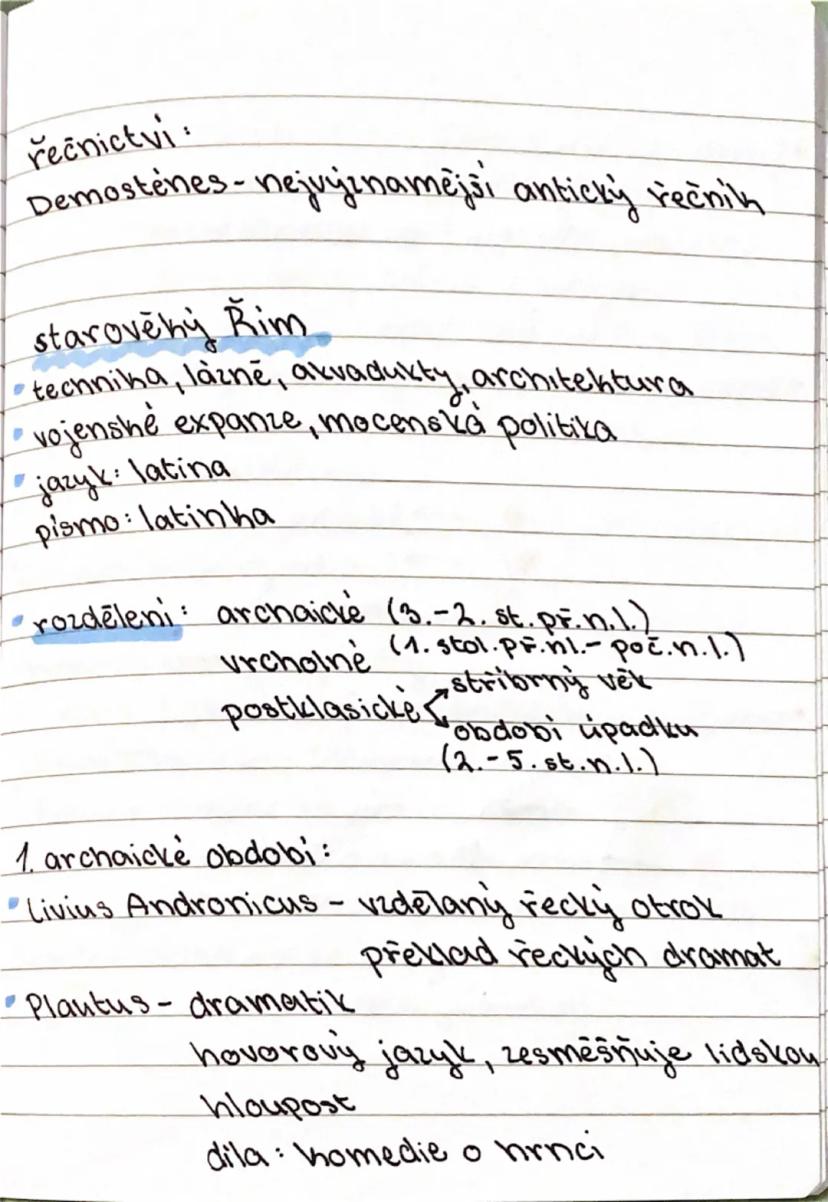 řečnictví:
Demosténes - nejvýznamější antický řečník
starověký Řím
technika, lázně, akvadukty, architektura
vojenské expanze, mocenská politika
jazyk: latina
písmo: latinka
rozdělení: archaické (3.-2. st. př. n. l.)
vrcholné (1. stol. př. nl. - poč. n. l.)
stříbrný věk
postklasické
období úpadku
(2.-5. st. n. l.)
1. archaické období:
Livius Andronicus - vzdělaný řecký otrok
překlad řeckých dramat
Plautus - dramatik
hovorový jazyk, zesměšňuje lidskou
hloupost
díla: komedie o hrnci